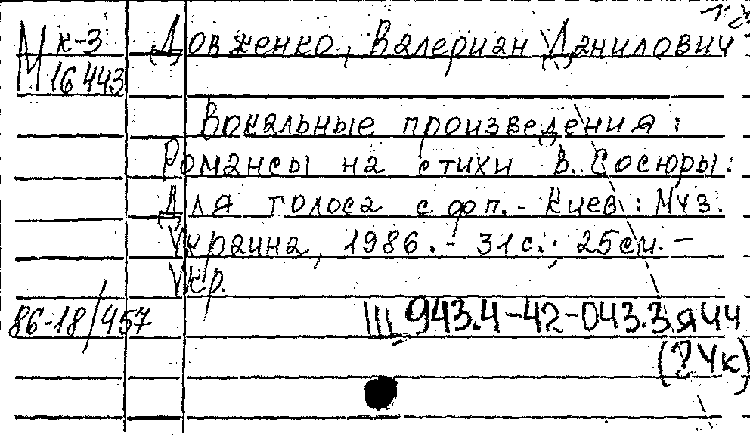 М к-3 Довженко, Валериан Данилович
16443
Вокальные произведения:
Романсы на стихи В. Сосюры:
Для голоса с фп. - Киев: Муз.
Украина, 1986. - 31 с.; 25 см. -
Укр.
86-18/457 III 943.4-42-043.3я44
(2Ук)